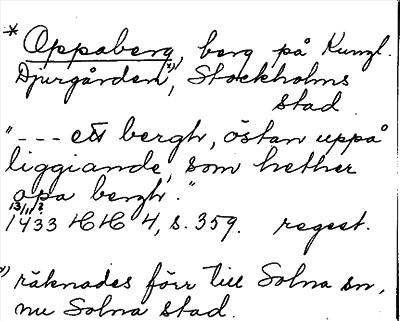 * Oppaberg, berg på Kungl.
Djurgården x), Stockholms
stad
"--- ett bergh, östan uppå
liggiande, som hether
apa bergh."
13/11?
1433 HH 4, s. 359. regest.
x) räknades förr till Solna sn,
nu Solna stad.